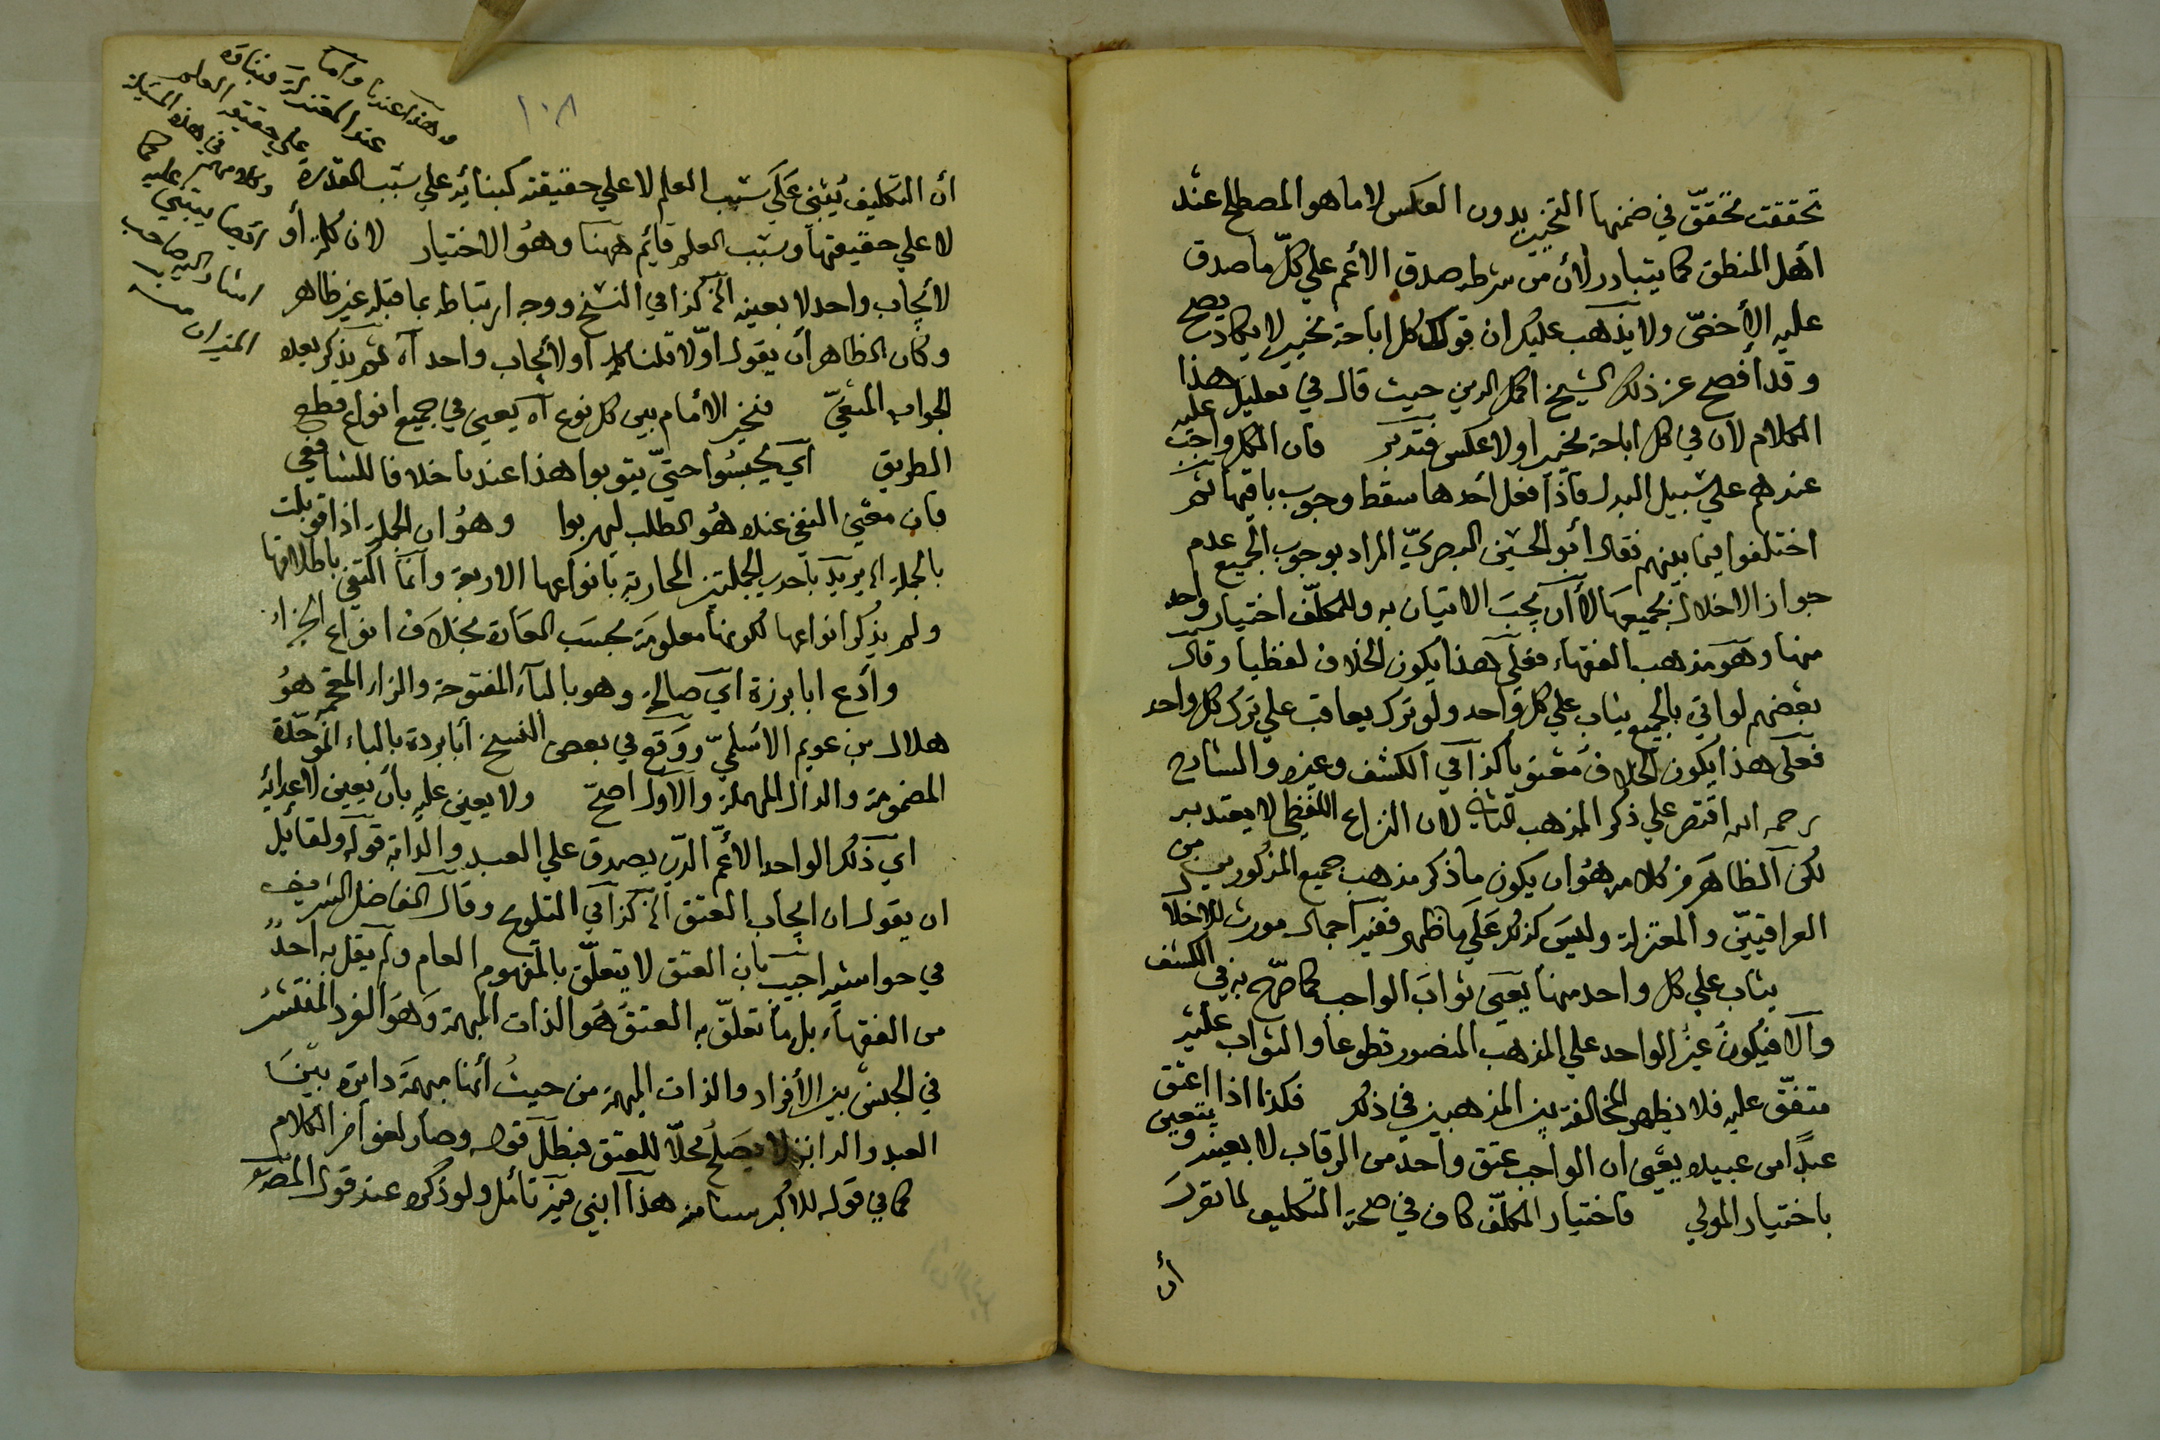 تحققت تحقق في ضمنها التخيير بدون العكس لا ما هو المصطلح عند
أهل المنطق كما يتبادر لأن من شرطه صدق الأعم علي كل ما صدق
عليه الأخص ولا يذهب عليك ان قولك كل اباحة تخيير لا يكاد يصح
وقد أفصح عن ذلك الشيخ اكمل الدين حيث قال في تعليل هذا
الكلام لان في كل اباحة تخييرا ولا عكس فتدبر فان الكل واجب عليه
عندهم علي سبيل البدل فاذا فعل أحدها سقط وجوب باقيها ثم
اختلفوا فيما بينهم فقال أبو الحسين البصري المراد بوجوب الجميع عدم
جواز الاخلال بجميعها لا أن يجب الاتيان به وللمكلف اختيار واحد
منها وهو مذهب الفقهاء فعلي هذا يكون الخلاف لفظيا وقال
بعضهم لو اتي بالجميع يثاب علي كل واحد ولو ترك يعاقب علي ترك كل واحد
فعلي هذا يكون الخلاف معنويا كذا في الكشف وغيره والشارح
رحمه الله اقتصر علي ذكر المذهب الثاني لان النزاع اللفظي لا يعتد به
لكن الظاهر من كلامه هو ان يكون ما ذكر مذهب جميع المذكورين من
العراقيين والمعتزلة وليس كذلك علي ما ظهر ففيه اجمال مورث للاخلال
يثاب علي كل واحد منها يعني ثواب الواجب كما صرح به في الكشف
والا فيكون غير الواحد علي المذهب المنصور تطوعا والثواب عليه
متفق عليه فلا يظهر المخالفة بين المذهبين في ذلك فكذا اذا اعتق
عبدا من عبيده يعني ان الواجب عتق واحد من الرقاب لا بعينه ويتعين
باختيار المولي فاختيار المكلف كاف في صحة التكليف لما تقرر
أن
١٠٨
أن التكليف يبتني علي سبب العلم لا علي حقيقته كبنائه علي سبب القدرة
لا علي حقيقتها وسبب العلم قائم ههنا وهو الاختيار لان كلمة أو
لايجاب واحد لا بعينه الخ كذا في النسخ ووجه ارتباطه بما قبله غير ظاهر
وكان الظاهر أن يقول اولا قلنا كلمة أو لايجاب واحد آه ثم يذكر بعده
الجواب المنفي فنخير الامام بين كل نوع آه يعني في جميع انواع قطع
الطريق اي يحبسوا حتي يتوبوا هذا عندنا خلافا للشافعي
فان معني النفي عنده هو الطلب ليهربوا وهو ان الجملة اذا قوبلت
بالجملة الا يريد باحدي الجملتين المحاربة بأنواعها الاربعة وانما اكتفي باطلاقها
ولم يذكر انواعها لكونها معلومة بحسب العادة بخلاف انواع الجزاء
وادع ابا برزة اي صالحه وهو بالباء المفتوحة والزاء المعجمة هو
هلال بن عويمر الاسلمي ووقع في بعض النسخ أبا بردة بالباء الموحدة
المضمومة والدال المهملة والاول اصح ولا يعين عليه بأن يعين لأعدائه
اي ذلك الواحد الاعم الذي يصدق علي العبد والدابة قوله ولقائل
ان يقول ان ايجاب العتق الخ كذا في التلويح وقال الفاضل الشريف
في حواشيه اجيب بان العتق لا يتعلق بالمفهوم العام ولم يقل به احد
من الفقهاء بل ما تعلق به العتق هو الذات المبهمة وهو الفرد المنتشر
في الجنس بين الأفراد والذات المبهمة من حيث أنها مبهمة دائرة بين
العبد والدابة لا يصلح محلا للعتق فبطل قوله وصار لغوا آخر الكلام
كما في قوله للاكبر سنا منه هذا ابني فيه تأمل ولو ذكره عند قول المصنف
وهذا عندنا واما
عند المعتزلة فبناؤه
علي حقيقة العلم
في هذه المسئلة
وكلامهم كما
أيضا يبتني عليه
اشار اليه صاحب
الميزان منه